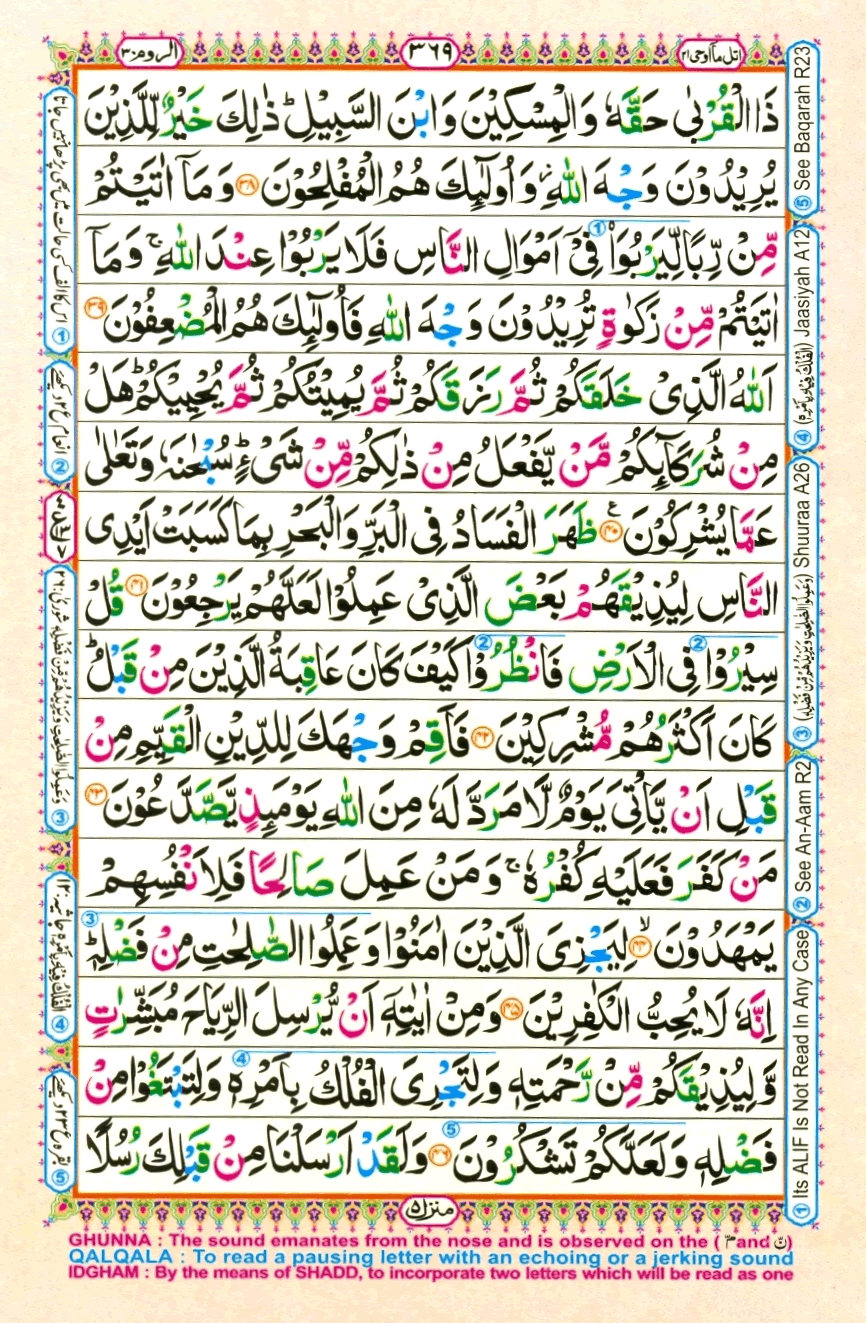 اتل مآ اوحی ۲۱
۳۶۹
الروم ۳۰
ذَا الْقُرْبٰى حَقَّهٗ وَالْمِسْكِيْنَ وَابْنَ السَّبِيْلِ ؕ ذٰلِكَ خَيْرٌ لِّلَّذِيْنَ
يُرِيْدُوْنَ وَجْهَ اللّٰهِ ؗ وَاُولٰٓئِكَ هُمُ الْمُفْلِحُوْنَ ۳۸ وَمَاۤ اٰتَيْتُمْ
مِّنْ رِّبًا لِّيَرْبُوَا۠ فِيْۤ اَمْوَالِ النَّاسِ فَلَا يَرْبُوْا عِنْدَ اللّٰهِ ۚ وَمَاۤ
اٰتَيْتُمْ مِّنْ زَكٰوةٍ تُرِيْدُوْنَ وَجْهَ اللّٰهِ فَاُولٰٓئِكَ هُمُ الْمُضْعِفُوْنَ ۳۹
اَللّٰهُ الَّذِيْ خَلَقَكُمْ ثُمَّ رَزَقَكُمْ ثُمَّ يُمِيْتُكُمْ ثُمَّ يُحْيِيْكُمْ ؕ هَلْ
مِنْ شُرَكَآئِكُمْ مَّنْ يَّفْعَلُ مِنْ ذٰلِكُمْ مِّنْ شَيْءٍ ؕ سُبْحٰنَهٗ وَتَعٰلٰى
عَمَّا يُشْرِكُوْنَ ۴۰ ع ظَهَرَ الْفَسَادُ فِي الْبَرِّ وَالْبَحْرِ بِمَا كَسَبَتْ اَيْدِي
النَّاسِ لِيُذِيْقَهُمْ بَعْضَ الَّذِيْ عَمِلُوْا لَعَلَّهُمْ يَرْجِعُوْنَ ۴۱ قُلْ
سِيْرُوْا فِي الْاَرْضِ فَانْظُرُوْا كَيْفَ كَانَ عَاقِبَةُ الَّذِيْنَ مِنْ قَبْلُ ؕ
كَانَ اَكْثَرُهُمْ مُّشْرِكِيْنَ ۴۲ فَاَقِمْ وَجْهَكَ لِلدِّيْنِ الْقَيِّمِ مِنْ
قَبْلِ اَنْ يَّاْتِيَ يَوْمٌ لَّا مَرَدَّ لَهٗ مِنَ اللّٰهِ يَوْمَئِذٍ يَّصَّدَّعُوْنَ ۴۳
مَنْ كَفَرَ فَعَلَيْهِ كُفْرُهٗ ۚ وَمَنْ عَمِلَ صَالِحًا فَلِاَنْفُسِهِمْ
يَمْهَدُوْنَ ۙ ۴۴ لِيَجْزِيَ الَّذِيْنَ اٰمَنُوْا وَعَمِلُوا الصّٰلِحٰتِ مِنْ فَضْلِهٖ ؕ
اِنَّهٗ لَا يُحِبُّ الْكٰفِرِيْنَ ۴۵ وَمِنْ اٰيٰتِهٖۤ اَنْ يُّرْسِلَ الرِّيَاحَ مُبَشِّرٰتٍ
وَّلِيُذِيْقَكُمْ مِّنْ رَّحْمَتِهٖ وَلِتَجْرِيَ الْفُلْكُ بِاَمْرِهٖ وَلِتَبْتَغُوْا مِنْ
فَضْلِهٖ وَلَعَلَّكُمْ تَشْكُرُوْنَ ۴۶ وَلَقَدْ اَرْسَلْنَا مِنْ قَبْلِكَ رُسُلًا
منزل ۵
① Its ALIF Is Not Read In Any Case
② See An-Aam R2
③ (وَعَمِلُوا الصّٰلِحٰتِ وَيَزِيْدُهُمْ مِّنْ فَضْلِهٖ) Shuuraa A26
④ (الْفُلْكُ فِيْهِ بِاَمْرِهٖ) Jaasiyah A12
⑤ See Baqarah R23
① اس کا الف کسی حالت میں بھی پڑھا نہیں جاتا
② انعام ع ۲ دیکھئے
③ وَعَمِلُوا الصّٰلِحٰتِ وَيَزِيْدُهُمْ مِّنْ فَضْلِهٖ شوریٰ:۲۶
④ الْفُلْكُ فِيْهِ بِاَمْرِهٖ جاثیہ:۱۲
⑤ بقرہ ع ۲۳ دیکھئے
GHUNNA : The sound emanates from the nose and is observed on the ( مّ and نّ )
QALQALA : To read a pausing letter with an echoing or a jerking sound
IDGHAM : By the means of SHADD, to incorporate two letters which will be read as one